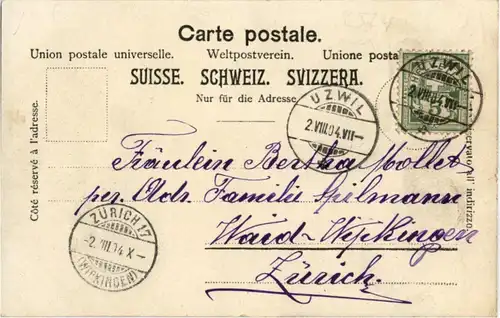 Carte postale.
Union postale universelle. Weltpostverein. Unione posta
SUISSE. SCHWEIZ. SVIZZERA.
Nur für die Adresse
UZWIL
2.VIII.04.VII—
UZWIL
2.VIII.04.VII
Côté réservé à l'adresse.
servato all' indirizzo.
Fräulein Bertha Mollet
per. Ads. Familie Spilmann
Waid-Wipkingen
Zürich.
ZÜRICH 17
-2.VIII.04 X-
(WIPKINGEN)